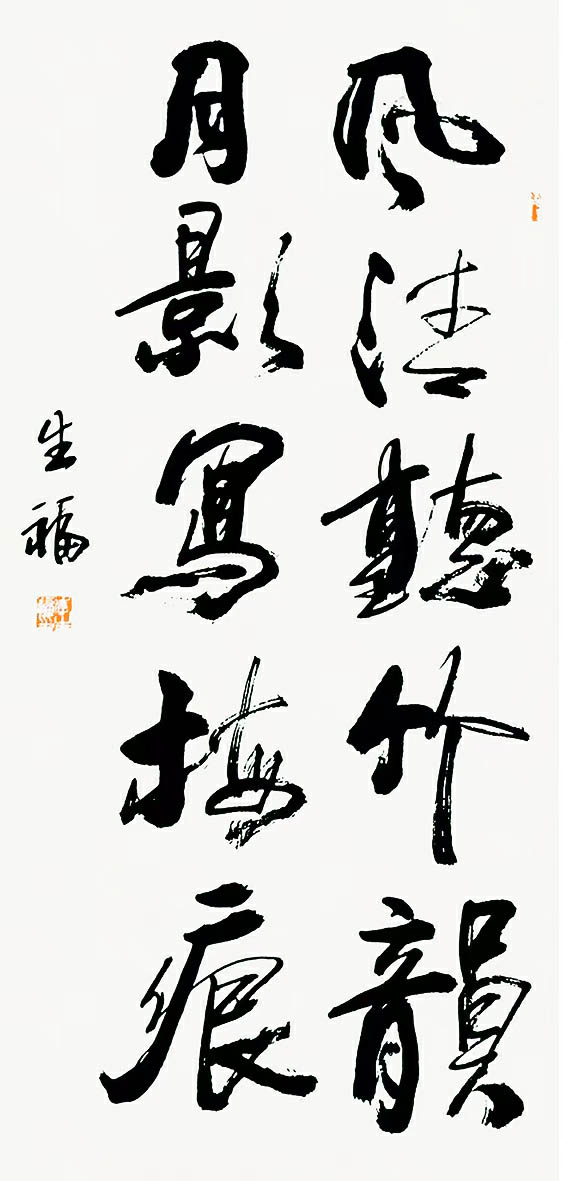 風聽竹韻
月影寫梅痕
生福